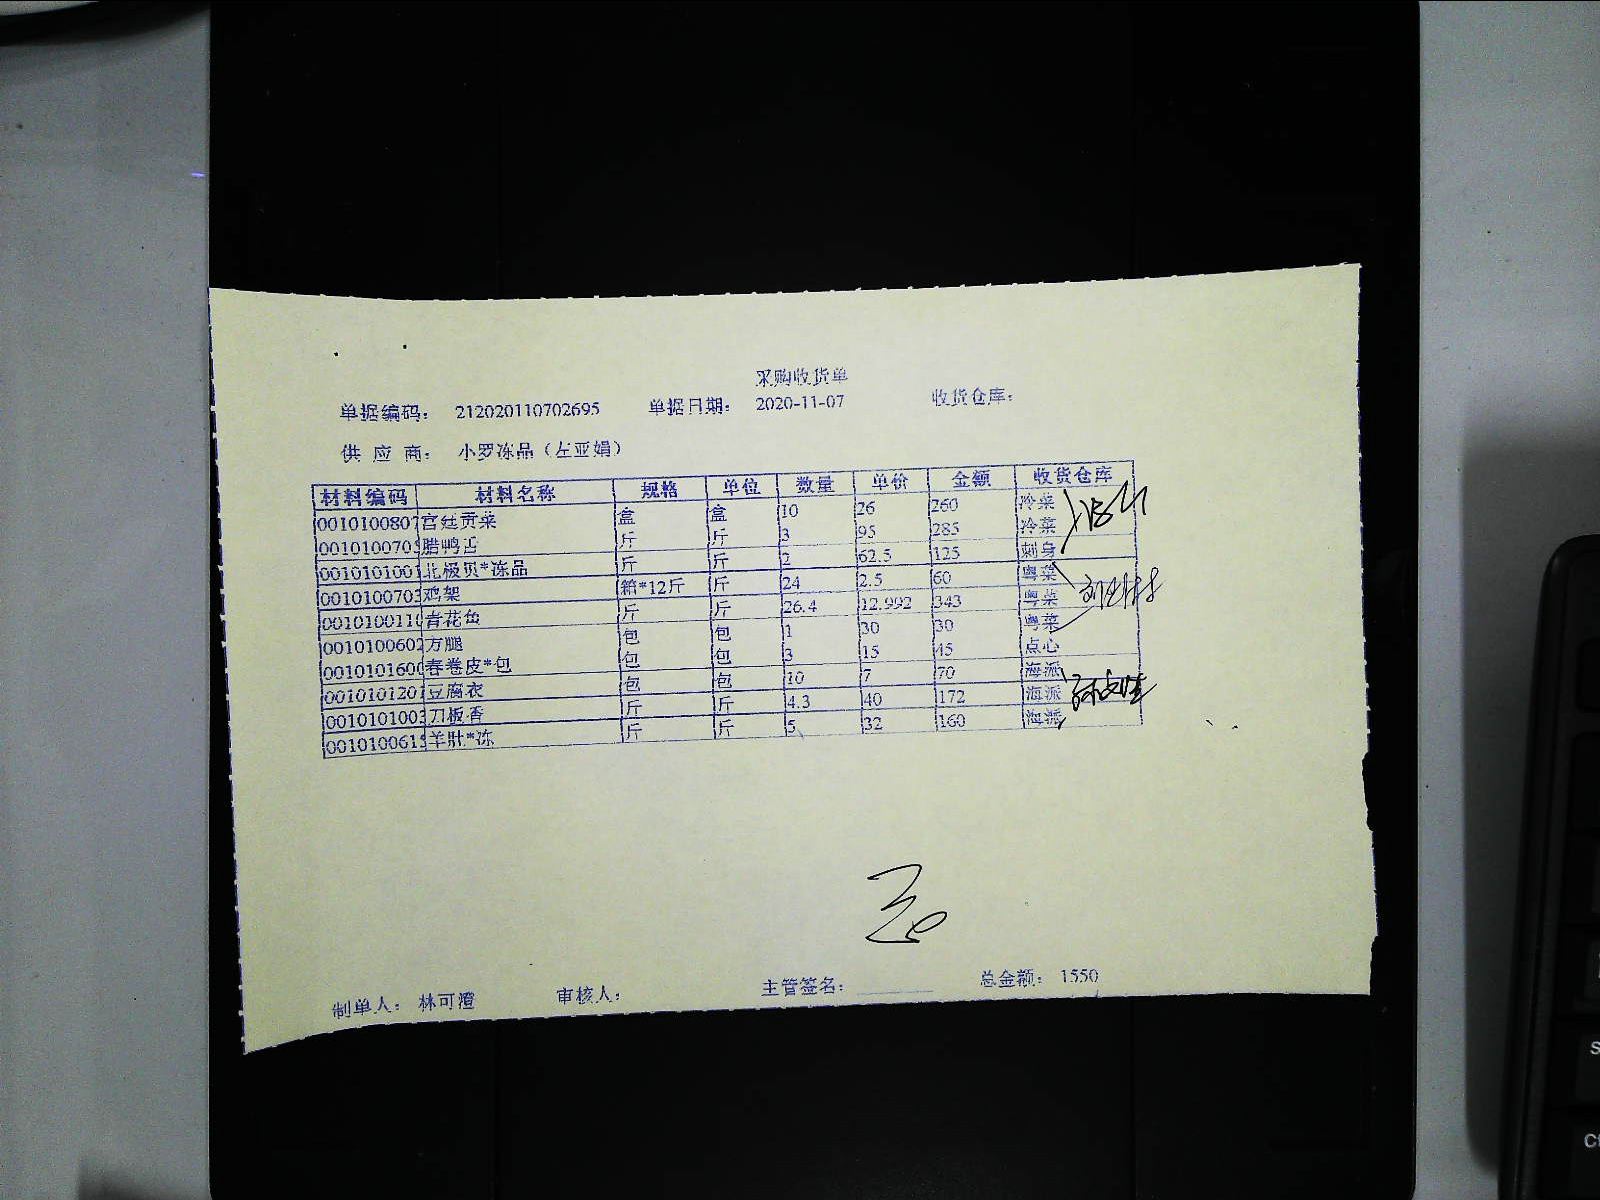 采购收货单
单据编码： 212020110702695 单据日期： 2020-11-07 收货仓库：
供 应 商： 小罗冻品（左亚娟）
材料编码 材料名称 规格 单位 数量 单价 金额 收货仓库
0010100807 宫廷贡菜 盒 盒 10 26 260 冷菜
001010070 腊鸭舌 斤 斤 3 95 285 冷菜
0010101001 北极贝*冻品 斤 斤 2 62.5 125 刺身
0010100703 鸡架 箱*12斤 斤 24 2.5 60 粤菜
001010011 青花鱼 斤 斤 26.4 12.992 343 粤菜
0010100602 方腿 包 包 1 30 30 粤菜
001010160 春卷皮*包 包 包 3 15 45 点心
001010120 豆腐衣 包 包 10 7 70 海派
0010101003 刀板香 斤 斤 4.3 40 172 海派
001010061 羊肚*冻 斤 斤 5 32 160 海派
制单人： 林可澄 审核人： 主管签名： 总金额： 1550